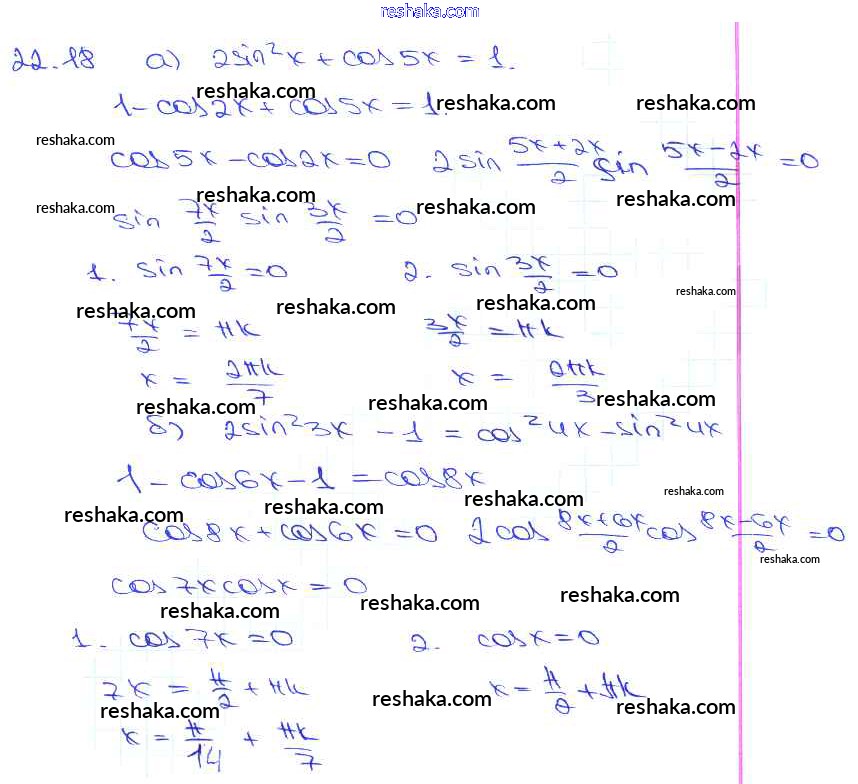 reshaka.com
22.18 а) 2sin²x + cos5x = 1.
reshaka.com
1 - cos2x + cos5x = 1. reshaka.com reshaka.com
reshaka.com
cos5x - cos2x = 0 2sin (5x+2x)/2 sin (5x-2x)/2 = 0
reshaka.com reshaka.com
reshaka.com reshaka.com
sin 7x/2 sin 3x/2 = 0
1. sin 7x/2 = 0 2. sin 3x/2 = 0
reshaka.com
reshaka.com reshaka.com reshaka.com
7x/2 = πk 3x/2 = πk
x = 2πk/7 x = 2πk/3
reshaka.com reshaka.com reshaka.com
б) 2sin²3x - 1 = cos²4x - sin²4x
1 - cos6x - 1 = cos8x
reshaka.com
reshaka.com reshaka.com reshaka.com
cos8x + cos6x = 0 2cos (8x+6x)/2 cos (8x-6x)/2 = 0
reshaka.com
cos7x cosx = 0
reshaka.com reshaka.com reshaka.com
1. cos7x = 0 2. cosx = 0
7x = π/2 + πk x = π/2 + πk
reshaka.com reshaka.com reshaka.com
x = π/14 + πk/7